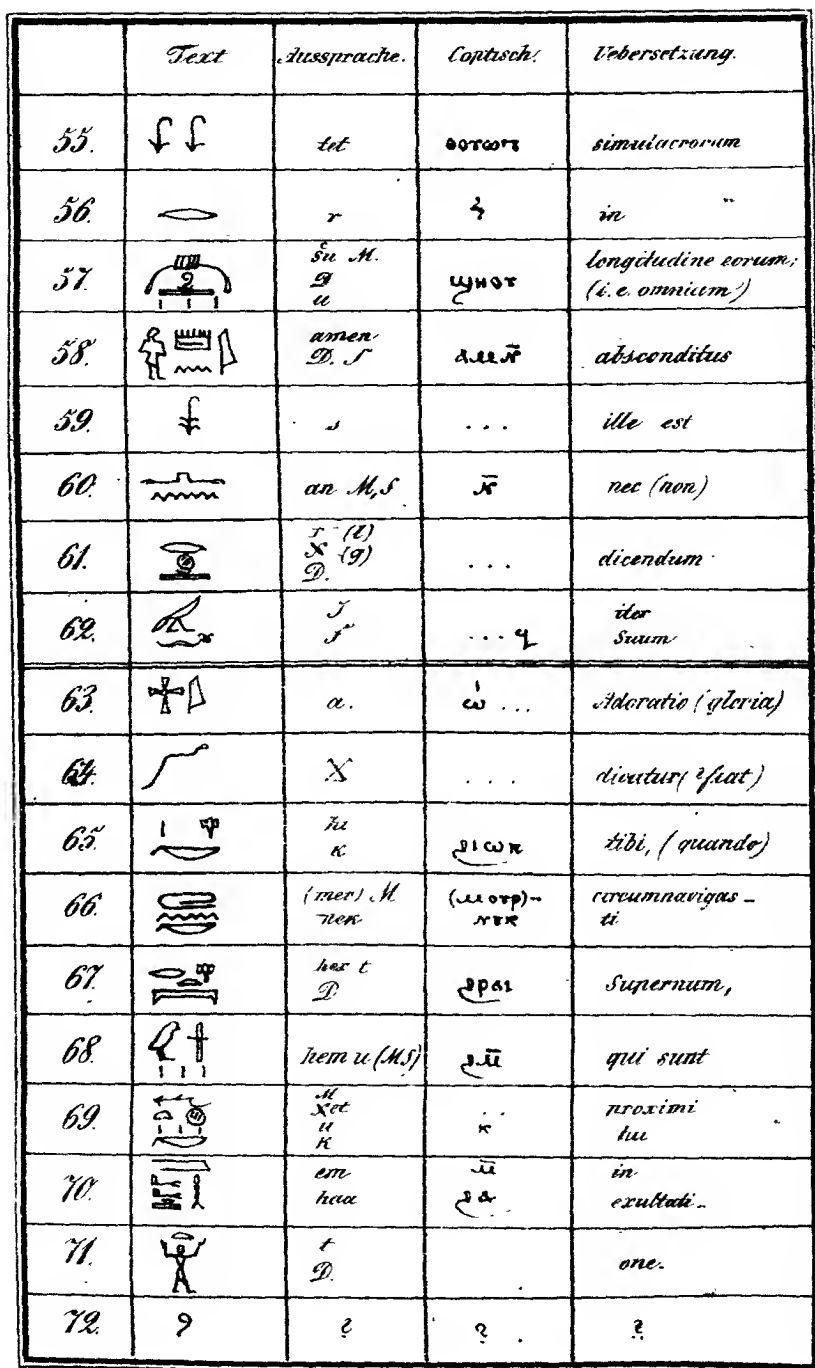 Text Aussprache. Coptisch. Uebersetzung.
55. tet ⲑⲟⲧⲱⲧ simulacrorum
56. r in "
57. šu M. longitudine eorum;
D ϣⲏⲟⲩ (i.e. omnium)
u
58. amen ⲁⲙⲛ̄ absconditus
D. S
59. s . . . ille est
60. an M,S ⲛ̄ nec (non)
61. r (l)
X (g) . . . dicendum
D.
62. J iter
f . . . ϥ Suum
63. a. ⲱ́ . . . Adoratio (gloria)
64. X . . . dicatur (? fiat)
65. hi
k ϩⲓⲱⲕ tibi, (quando)
66. (mer) M (ⲙⲟⲩⲣ)- circumnavigas-
nek ⲛⲧⲕ ti
67. her t ϩⲣⲁⲓ Supernum,
D
68. hem u (MS) ϩⲙ̄ qui sunt
69. M
Xet . . proximi
u ⲕ tui
K
70. em ⲙ̄ in
haa ϩⲁ exultati-
71. t
D. one.
72. ? ? ? . ?